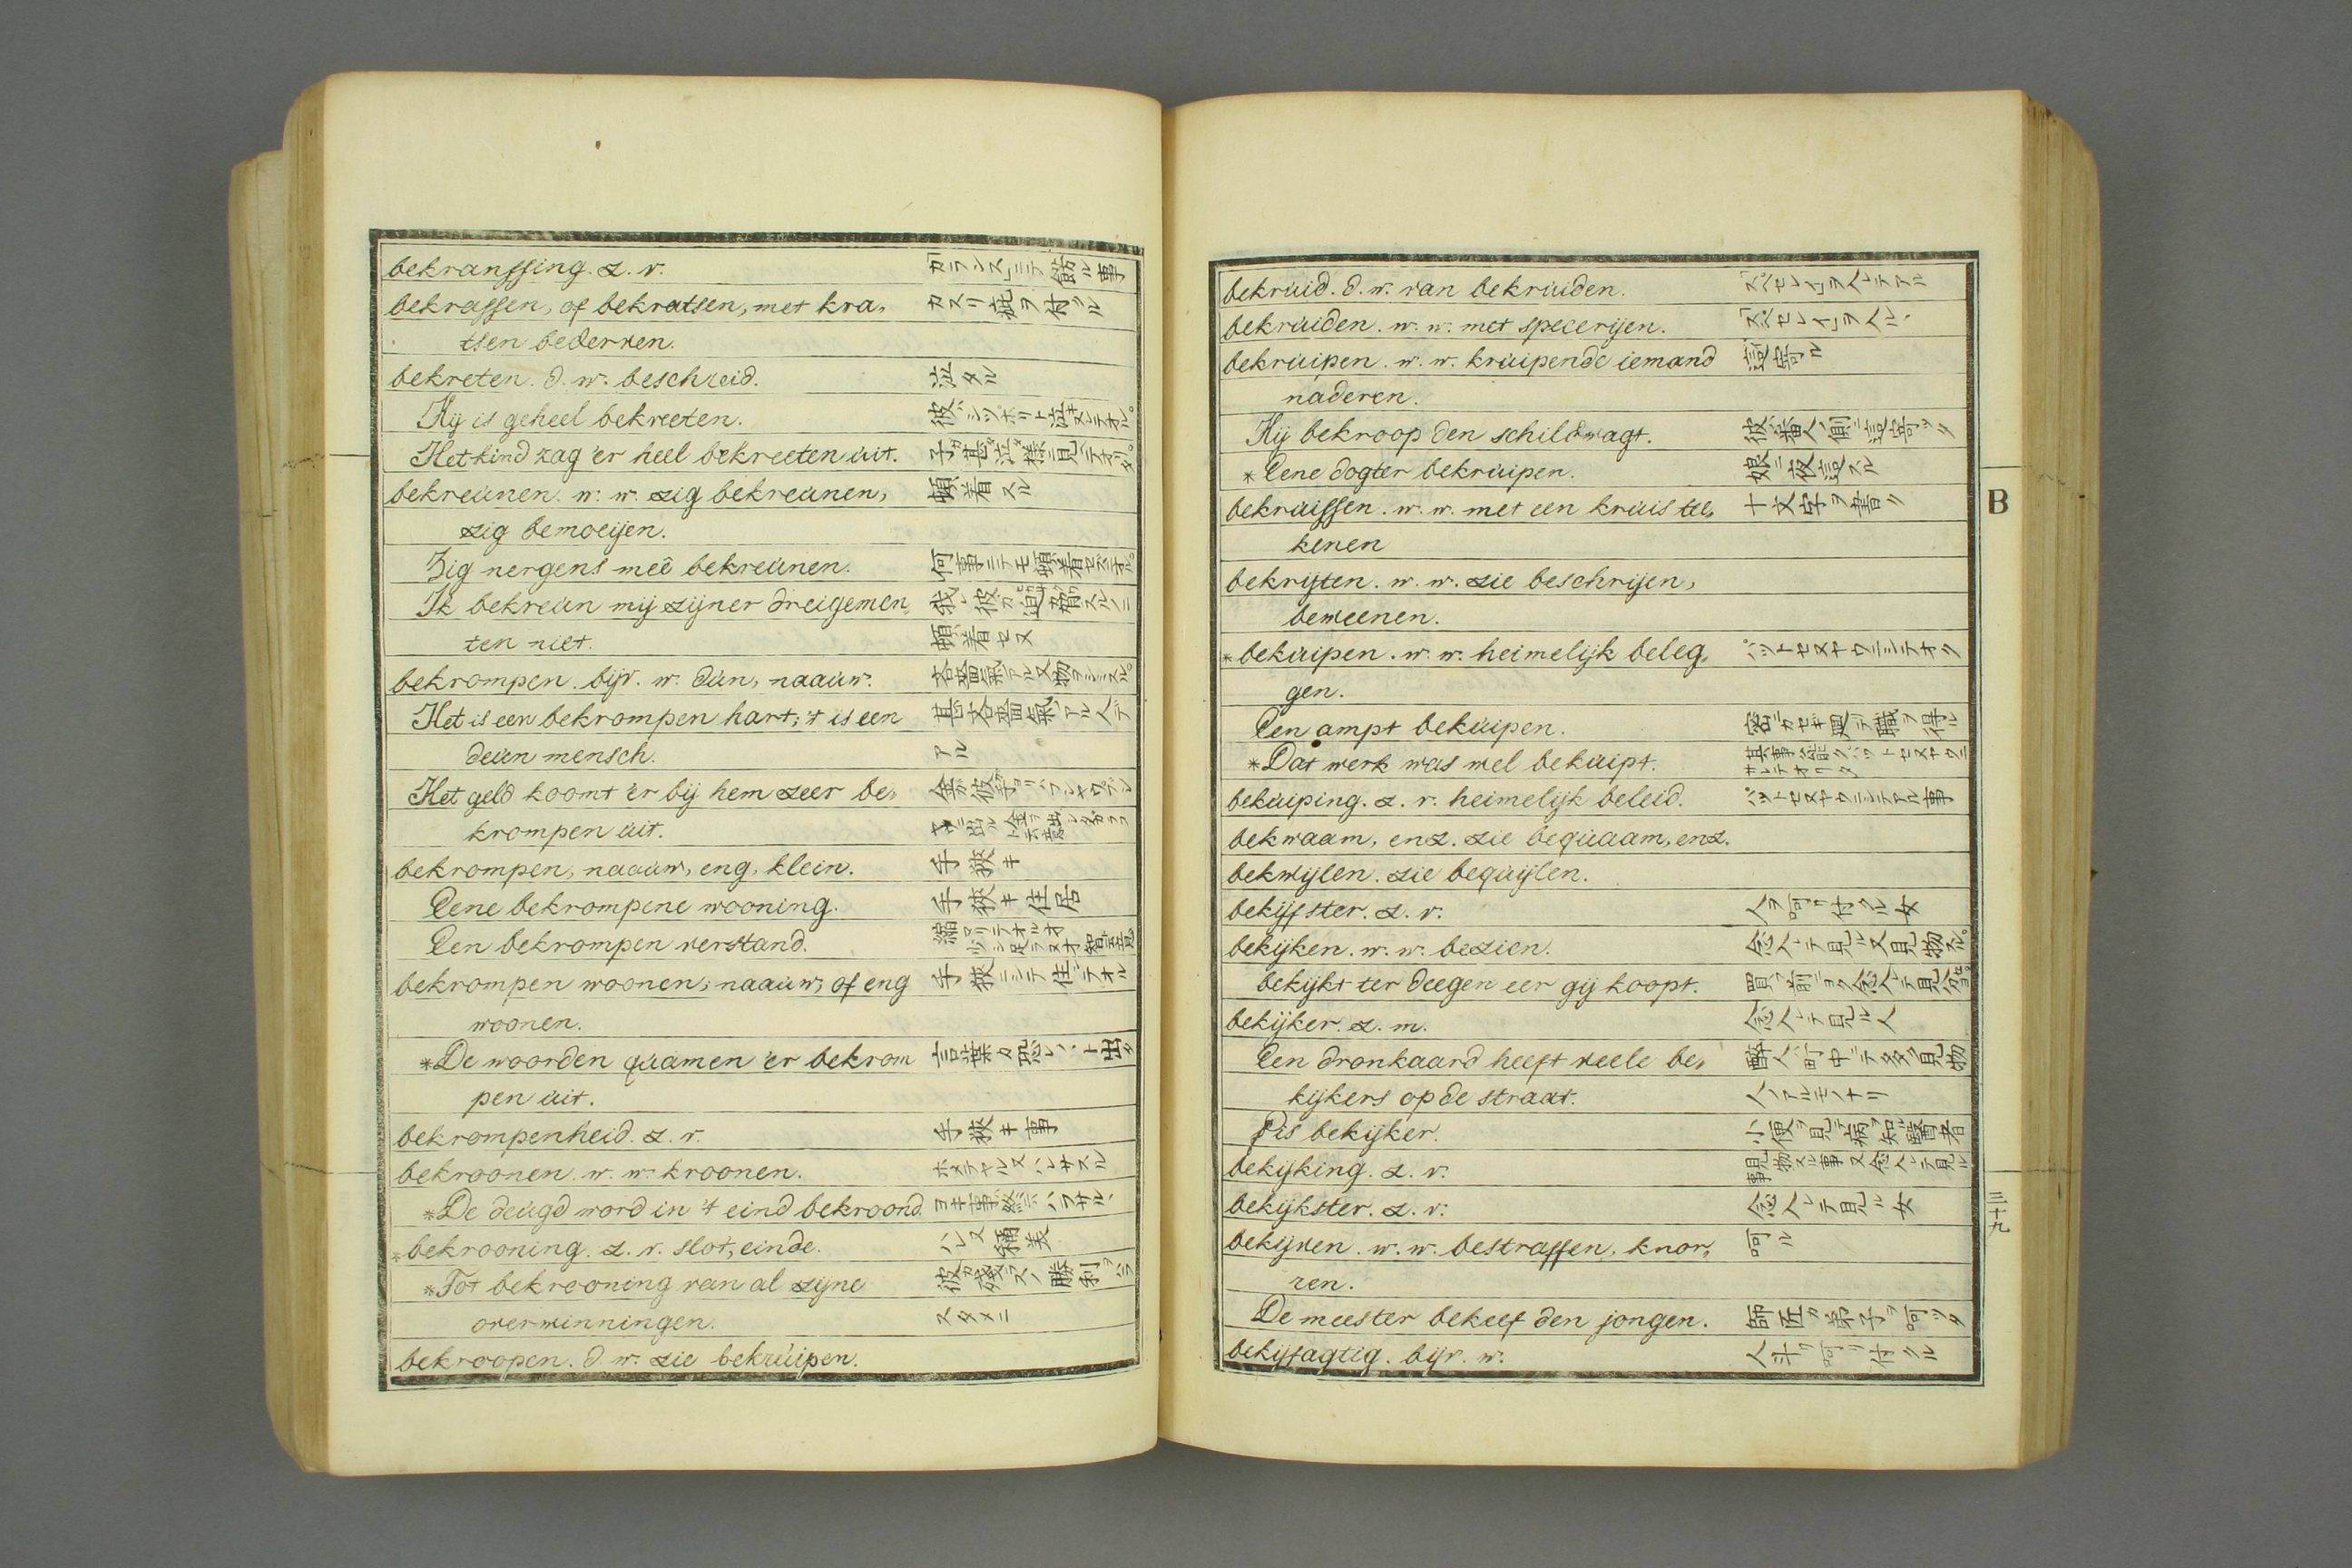 bekranssing. z. v. 「カランス」ニテ餝ル事
bekrassen, of bekratsen, met kra„ カスリ疵ヲ付ル
tsen bederven.
bekreten. d. w. beschreid. 泣タル
Hij is geheel bekreeten.
Het kind zag 'er heel bekreeten uit.
bekreunen. w. w. zig bekreunen, 頓着スル
zig bemoeijen.
Zig nergens meê bekreunen. 何事ニテモ頓着セズニオル。
Ik bekreun mij zijner dreigemen„ 我レ彼カ迫脅スルニ
ten niet. 頓着セヌ
bekrompen. bijv. w. dun, naauw.
Het is een bekrompen hart; 't is een 甚吝嗇氣アル人デ
deun mensch. アル
Het geld koomt 'er bij hem zeer be„
krompen uit.
bekrompen, naauw, eng, klein. 手狹キ
Eene bekrompene wooning. 手狹キ住居
Een bekrompen verstand.
bekrompen woonen; naauw, of eng 手狹ニシテ住テオル
woonen.
*De woorden quamen 'er bekrom
pen uit.
bekrompenheid. z. v. 手狹キ事
bekroonen. w. w. kroonen.
*De deugd word in 't eind bekroond.
*bekrooning. z. v. slot, einde.
*Tot bekrooning van al zijne
overwinningen. スタメニ
bekroopen. d. w. zie bekruipen.
bekruid. d. w. van bekruiden. 「スペセレイ」ヲ入レテアル
bekruiden. w. w. met specerijen. 「スペセレイ」ヲ入ル、
bekruipen. w. w. kruipende iemand 這寄ル
naderen.
Hij bekroop den schildwagt. 彼ハ番人ノ側ニ這寄ツタ
*Eene dogter bekruipen. 娘ニ夜這スル
bekruissen. w. w. met een kruis tee„ 十文字ヲ書ク
kenen
bekrijten. w. w. zie beschrijen,
beweenen.
*bekuipen. w. w. heimelijk beleg„ パットセヌヤウニシテオク
gen.
Een ampt bekuipen.
*Dat werk was wel bekuipt. 其事ハ能クパットセヌヤウニ
サレテオリタ
bekuiping. z. v. heimelijk beleid. パットセヌヤウニシテアル事
bekwaam, enz. zie bequaam, enz.
bekwijlen. zie bequijlen.
bekijfster. z. v. 人ヲ呵リ付クル女
bekijken. w. w. bezien. 念入レテ見ル又見物スル。
bekijkt ter deegen eer gij koopt.
bekijker. z. m. 念入レテ見ル人
Een dronkaard heeft veele be„ 醉人ハ町中ニテ多ク見物
kijkers op de straat. 人ノアルモノナリ
Pis bekijker. 小便ヲ見テ病ヲ知ル醫者
bekijking. z. v. 見物スル事又念入レテ見ル
事
bekijkster. z. v. 念入レテ見ル女
bekijven. w. w. bestraffen, knor„ 呵ル
ren.
De meester bekeef den jongen. 師匠ガ弟子ヲ呵ツタ
bekijfagtig. bijv. w.
B
三十九